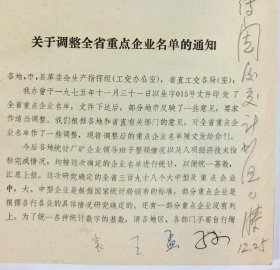 关于调整全省重点企业名单的通知
各地、市、县革委会生产指挥组(工交办公室),省直工交各局(室):
我办曾于一九七五年十一月三十一日以生字015号文件印发了
全省重点企业名单,文件下达后,部分地市反映了一些意见,要求
作适当调整。我们根据各地和省直有关部门的意见,对全省重点企
业名单作了一些调整,现将调整后的重点企业名单随文发给你们。
今后各地统计厂矿企业领导班子整顿情况以及八项经济技术指
标完成情况,均按这次确定的企业名单进行统计,以便统一基数,
汇总上报。这次研究确定的全省三百九十八个大中型及重点企业
中,大、中型企业是根据国家统计局颁布的标准,部分重点企业是
根据各行各业的具体情况研究确定的。还有一部分重点企业没有列
上。为了统一各种统计数字的基数,请各地区、各部门不要自行增
12.25